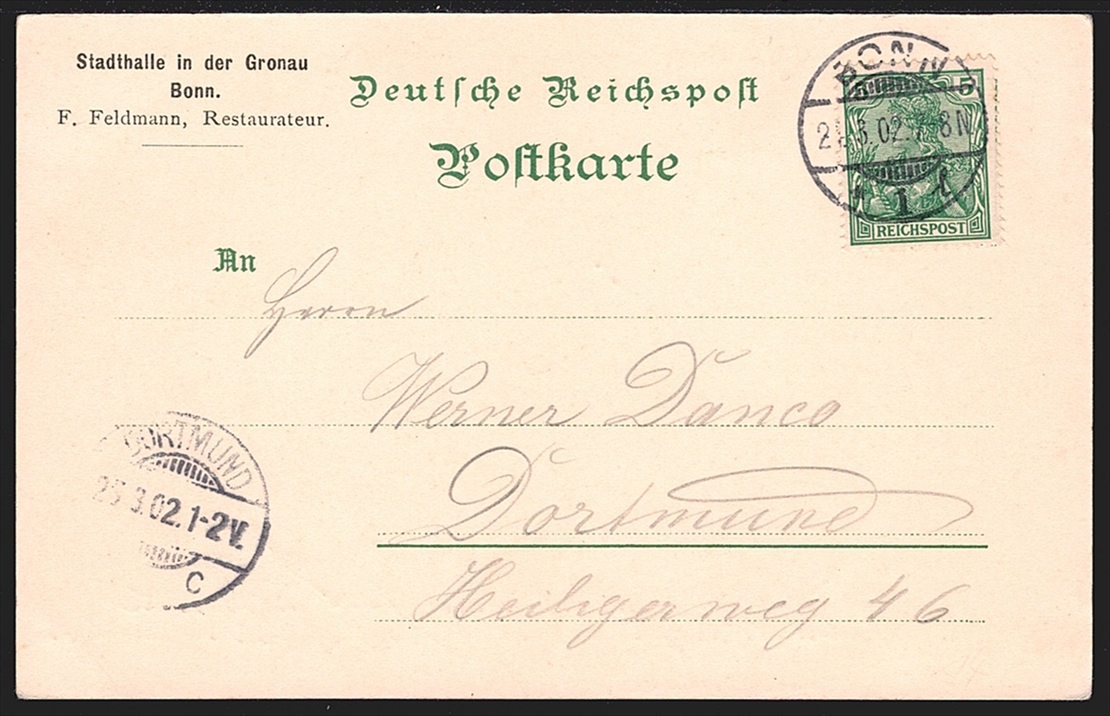 Stadthalle in der Gronau
Bonn.
F. Feldmann, Restaurateur.
Deutsche Reichspost
Postkarte
BONN
3.02. 8N
1
5
REICHSPOST
An
Herrn
Werner Danco
Dortmund
Heiligerweg 46
DORTMUND
25.3.02.1-2V.
C